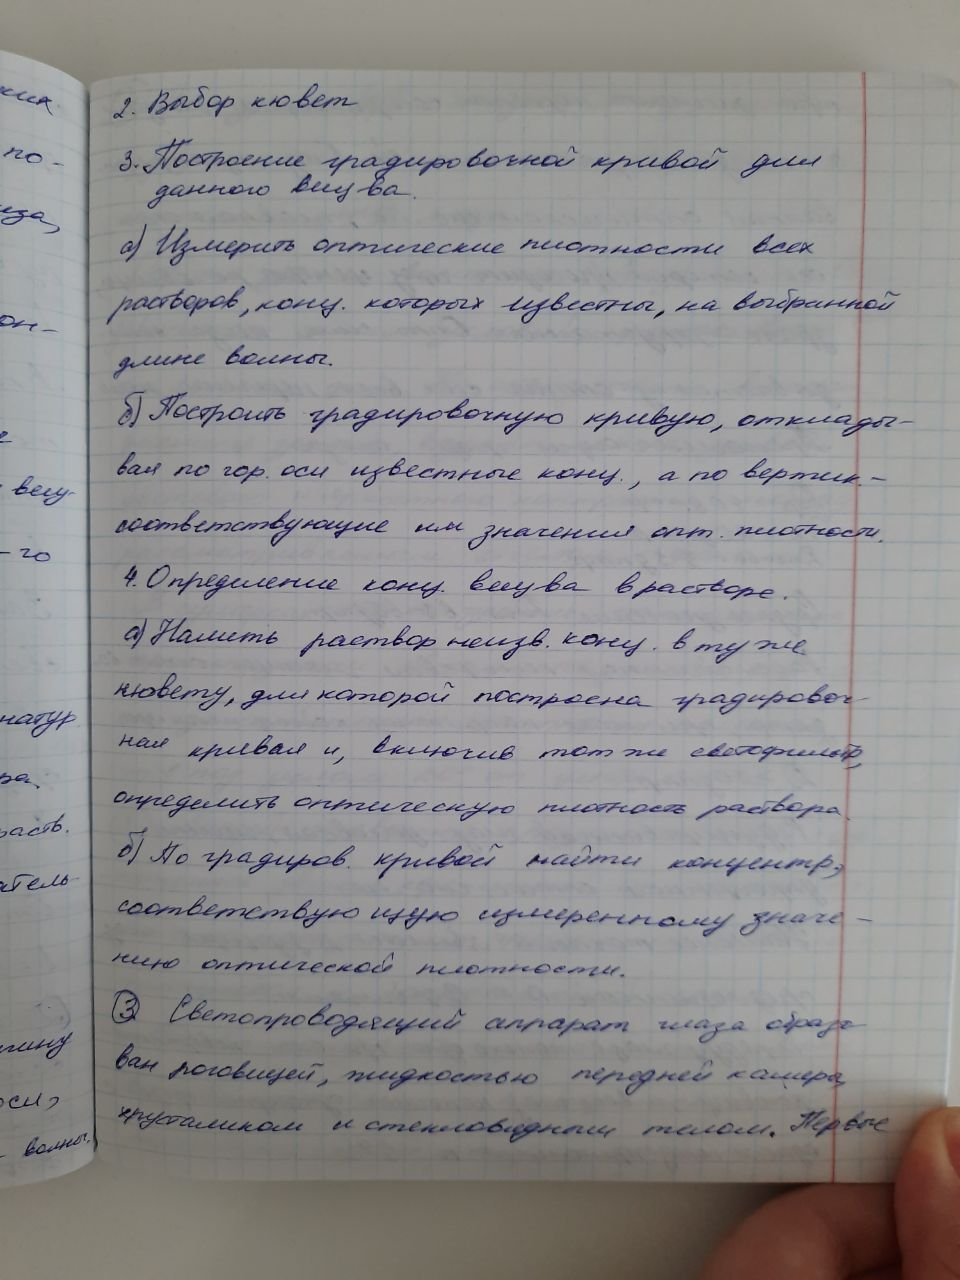 2. Выбор кювет
3. Построение градировочной кривой для
данного вещ-ва.
а) Измерить оптические плотности всех
растворов, конц. которых известны, на выбранной
длине волны.
б) Построить градировочную кривую, отклады-
вая по гор. оси известные конц., а по вертик. -
соответствующие им значения опт. плотности.
4. Определение конц. вещ-ва в растворе.
а) Налить раствор неизв. конц. в ту же
кювету, для которой построена градировоч-
ная кривая и, включив тот же светофильтр,
определить оптическую плотность раствора.
б) По градиров. кривой найти концентр.,
соответствующую измеренному значе-
нию оптической плотности.
3 Светопроводящий аппарат глаза образо
ван роговицей, жидкостью передней камеры,
хрусталиком и стекловидным телом. Первые
по-
он-
вещ-
- го
натур
ра.
раств.
атель-
оси,
волны.